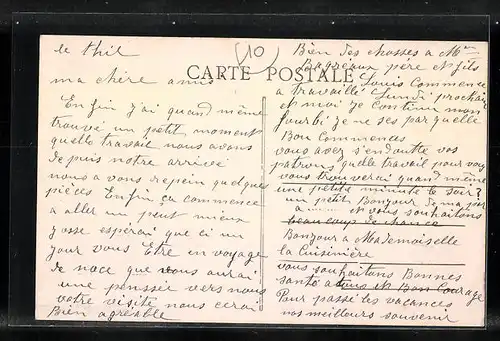 CARTE POSTALE
(10)
le Thil
ma chère amis
Enfin j'ai quand même
trouvé un petit moment
quelle travail nous avons
depuis notre arrivée
nous a vous repein quelques
pièces Enfin ça commence
a aller un peut mieux
J'osse espérai que ci un
jour vous Etre en voyage
de noce que vous aurai
une pensée vers nous
votre visite nous cerai
Bien agréable
Bien des chosses a Mr
père et fils
Louis Commence
a travaillé Lundi prochain
et moi je continu mon
fourbi je ne ses par quelle
Bou Commences
vous avez s'endoutte vos
patrons quelle travail pour vous
vous trouverai quand même
une petite minute le soir?
un petit Bonjour de ma par
a et vous souhaitons
beaucoup de chance
Bonjour a Mademoiselle
la Cuisinière
vous souhaitons Bonnes
santé a tous et Bon Courage
Pour passé les vacances
nos meilleurs souvenir